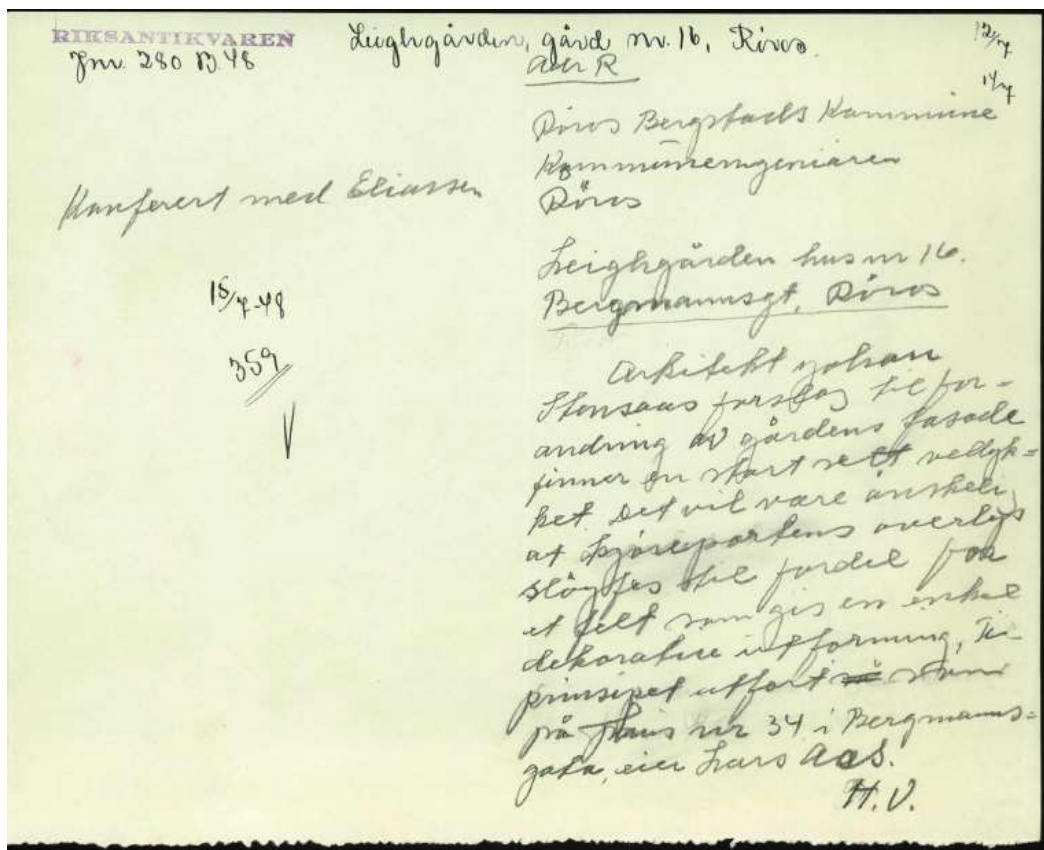 RIKSANTIKVAREN
Jnr. 280 B.48
Leighgården, gård nr. 16, Röros.
12/7
14/7
Röros Bergstads Kommune
Kommuneingeniören
Röros
Konferert med Eliassen
Leighgården hus nr 16.
Bergmannsgt, Röros
15/7-48
359
Arkitekt Johan
Stensaas forslag til for-
andring av gårdens fasade
finner en stort sett vellyk-
ket. Det vil være önskelig
at kjöreportens overlys
slöyfes til fordel for
et felt som gis en enkel
dekorative utforming, i
prinsipet utfört som
på hus nr 34 i Bergmanns-
gata, eier Lars Aas.
H.V.